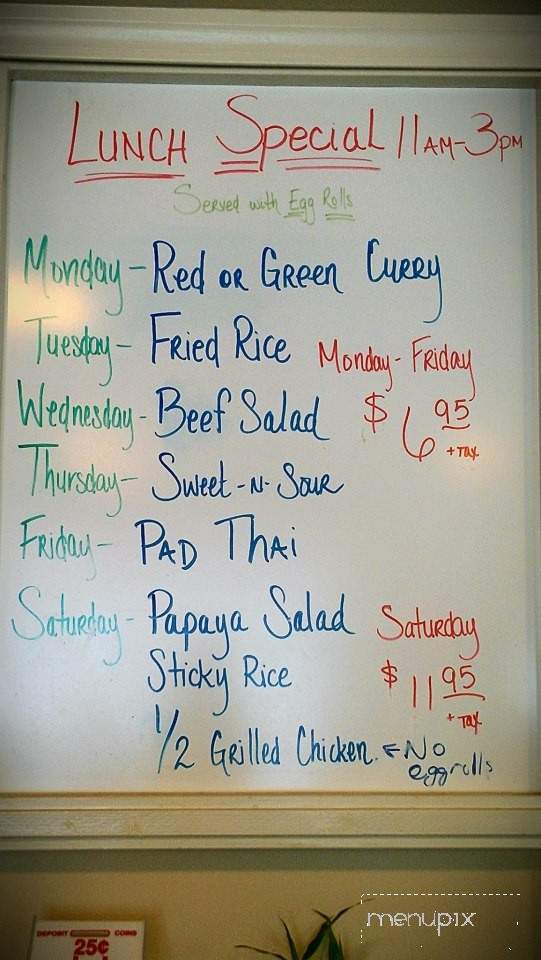 Lunch Special 11AM-3PM
Served with Egg Rolls
Monday - Red or Green Curry
Tuesday - Fried Rice
Monday - Friday
$6.95
+ Tax
Wednesday - Beef Salad
Thursday - Sweet-N-Sour
Friday - Pad Thai
Saturday - Papaya Salad
Sticky Rice
1/2 Grilled Chicken. ← No eggrolls
Saturday
$11.95
+ Tax
DEPOSIT COINS
25¢
menupix